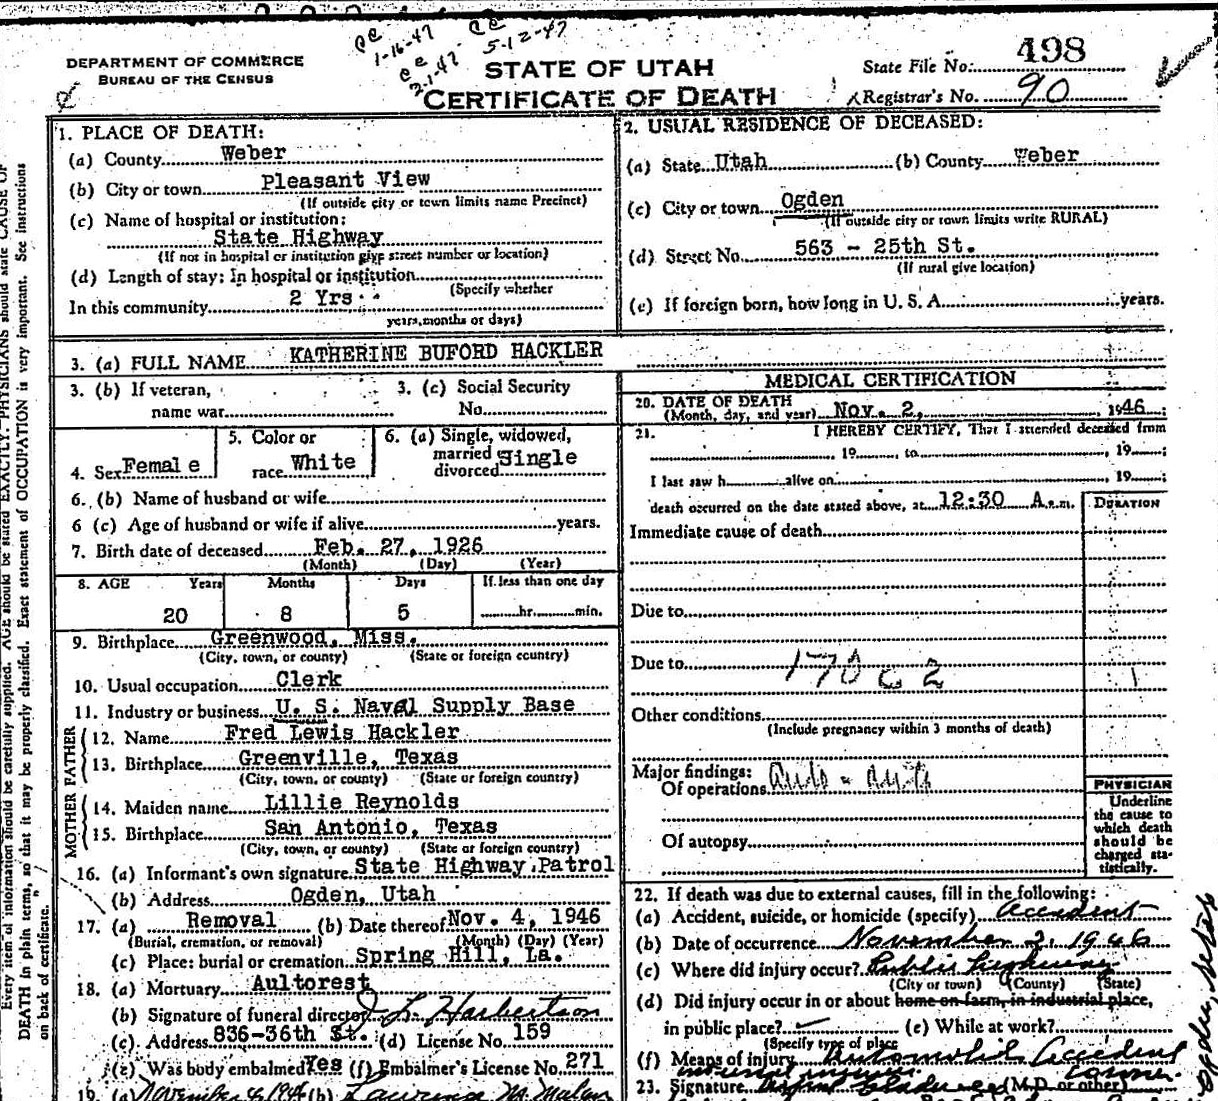 ce 1-16-47
ce 3-1-47
ce 5-12-47
DEPARTMENT OF COMMERCE
BUREAU OF THE CENSUS
STATE OF UTAH
CERTIFICATE OF DEATH
State File No. 498
Registrar's No. 90
1. PLACE OF DEATH:
(a) County Weber
(b) City or town Pleasant View
(If outside city or town limits name Precinct)
(c) Name of hospital or institution:
State Highway
(If not in hospital or institution give street number or location)
(d) Length of stay: In hospital or institution
(Specify whether
In this community 2 Yrs.
years, months or days)
2. USUAL RESIDENCE OF DECEASED:
(a) State Utah (b) County Weber
(c) City or town Ogden
(If outside city or town limits write RURAL)
(d) Street No. 563 - 25th St.
(If rural give location)
(e) If foreign born, how long in U. S. A. years.
3. (a) FULL NAME KATHERINE BUFORD HACKLER
3. (b) If veteran, name war
3. (c) Social Security No.
4. Sex Female
5. Color or race White
6. (a) Single, widowed, married divorced Single
6. (b) Name of husband or wife
6 (c) Age of husband or wife if alive years.
7. Birth date of deceased Feb. 27, 1926
(Month) (Day) (Year)
8. AGE Years Months Days If less than one day
20 8 5 hr. min.
9. Birthplace Greenwood, Miss.
(City, town, or county) (State or foreign country)
10. Usual occupation Clerk
11. Industry or business U. S. Naval Supply Base
FATHER
12. Name Fred Lewis Hackler
13. Birthplace Greenville, Texas
(City, town, or county) (State or foreign country)
MOTHER
14. Maiden name Lillie Reynolds
15. Birthplace San Antonio, Texas
(City, town, or county) (State or foreign country)
16. (a) Informant's own signature State Highway Patrol
(b) Address Ogden, Utah
17. (a) Removal (b) Date thereof Nov. 4, 1946
(Burial, cremation, or removal) (Month) (Day) (Year)
(c) Place: burial or cremation Spring Hill, La.
18. (a) Mortuary Aultorest
(b) Signature of funeral director J L Harbertson
(c) Address 836-36th St. (d) License No. 159
(e) Was body embalmed Yes (f) Embalmer's License No. 271
19. (a) November 4, 1946 (b)
MEDICAL CERTIFICATION
20. DATE OF DEATH
(Month, day, and year) Nov. 2, 1946;
21. I HEREBY CERTIFY, That I attended deceased from
19 , to , 19 ;
I last saw h alive on , 19 ;
death occurred on the date stated above, at 12:30 A.m.
DURATION
Immediate cause of death
Due to
Due to 170 c 2 1
Other conditions
(Include pregnancy within 3 months of death)
Major findings:
Of operations auto - auto
Of autopsy
PHYSICIAN
Underline
the cause to
which death
should be
charged sta-
tistically.
22. If death was due to external causes, fill in the following:
(a) Accident, suicide, or homicide (specify) Accident
(b) Date of occurrence November 2, 1946
(c) Where did injury occur? Public highway
(City or town) (County) (State)
(d) Did injury occur in or about home on farm, in industrial place,
in public place? ✓ (e) While at work?
(Specify type of place
(f) Means of injury Automobile Accident
23. Signature (M.D. or other)
Every item of information should be carefully supplied. AGE should be stated EXACTLY. PHYSICIANS should state CAUSE OF
DEATH in plain terms, so that it may be properly classified. Exact statement of OCCUPATION is very important. See instructions
on back of certificate.